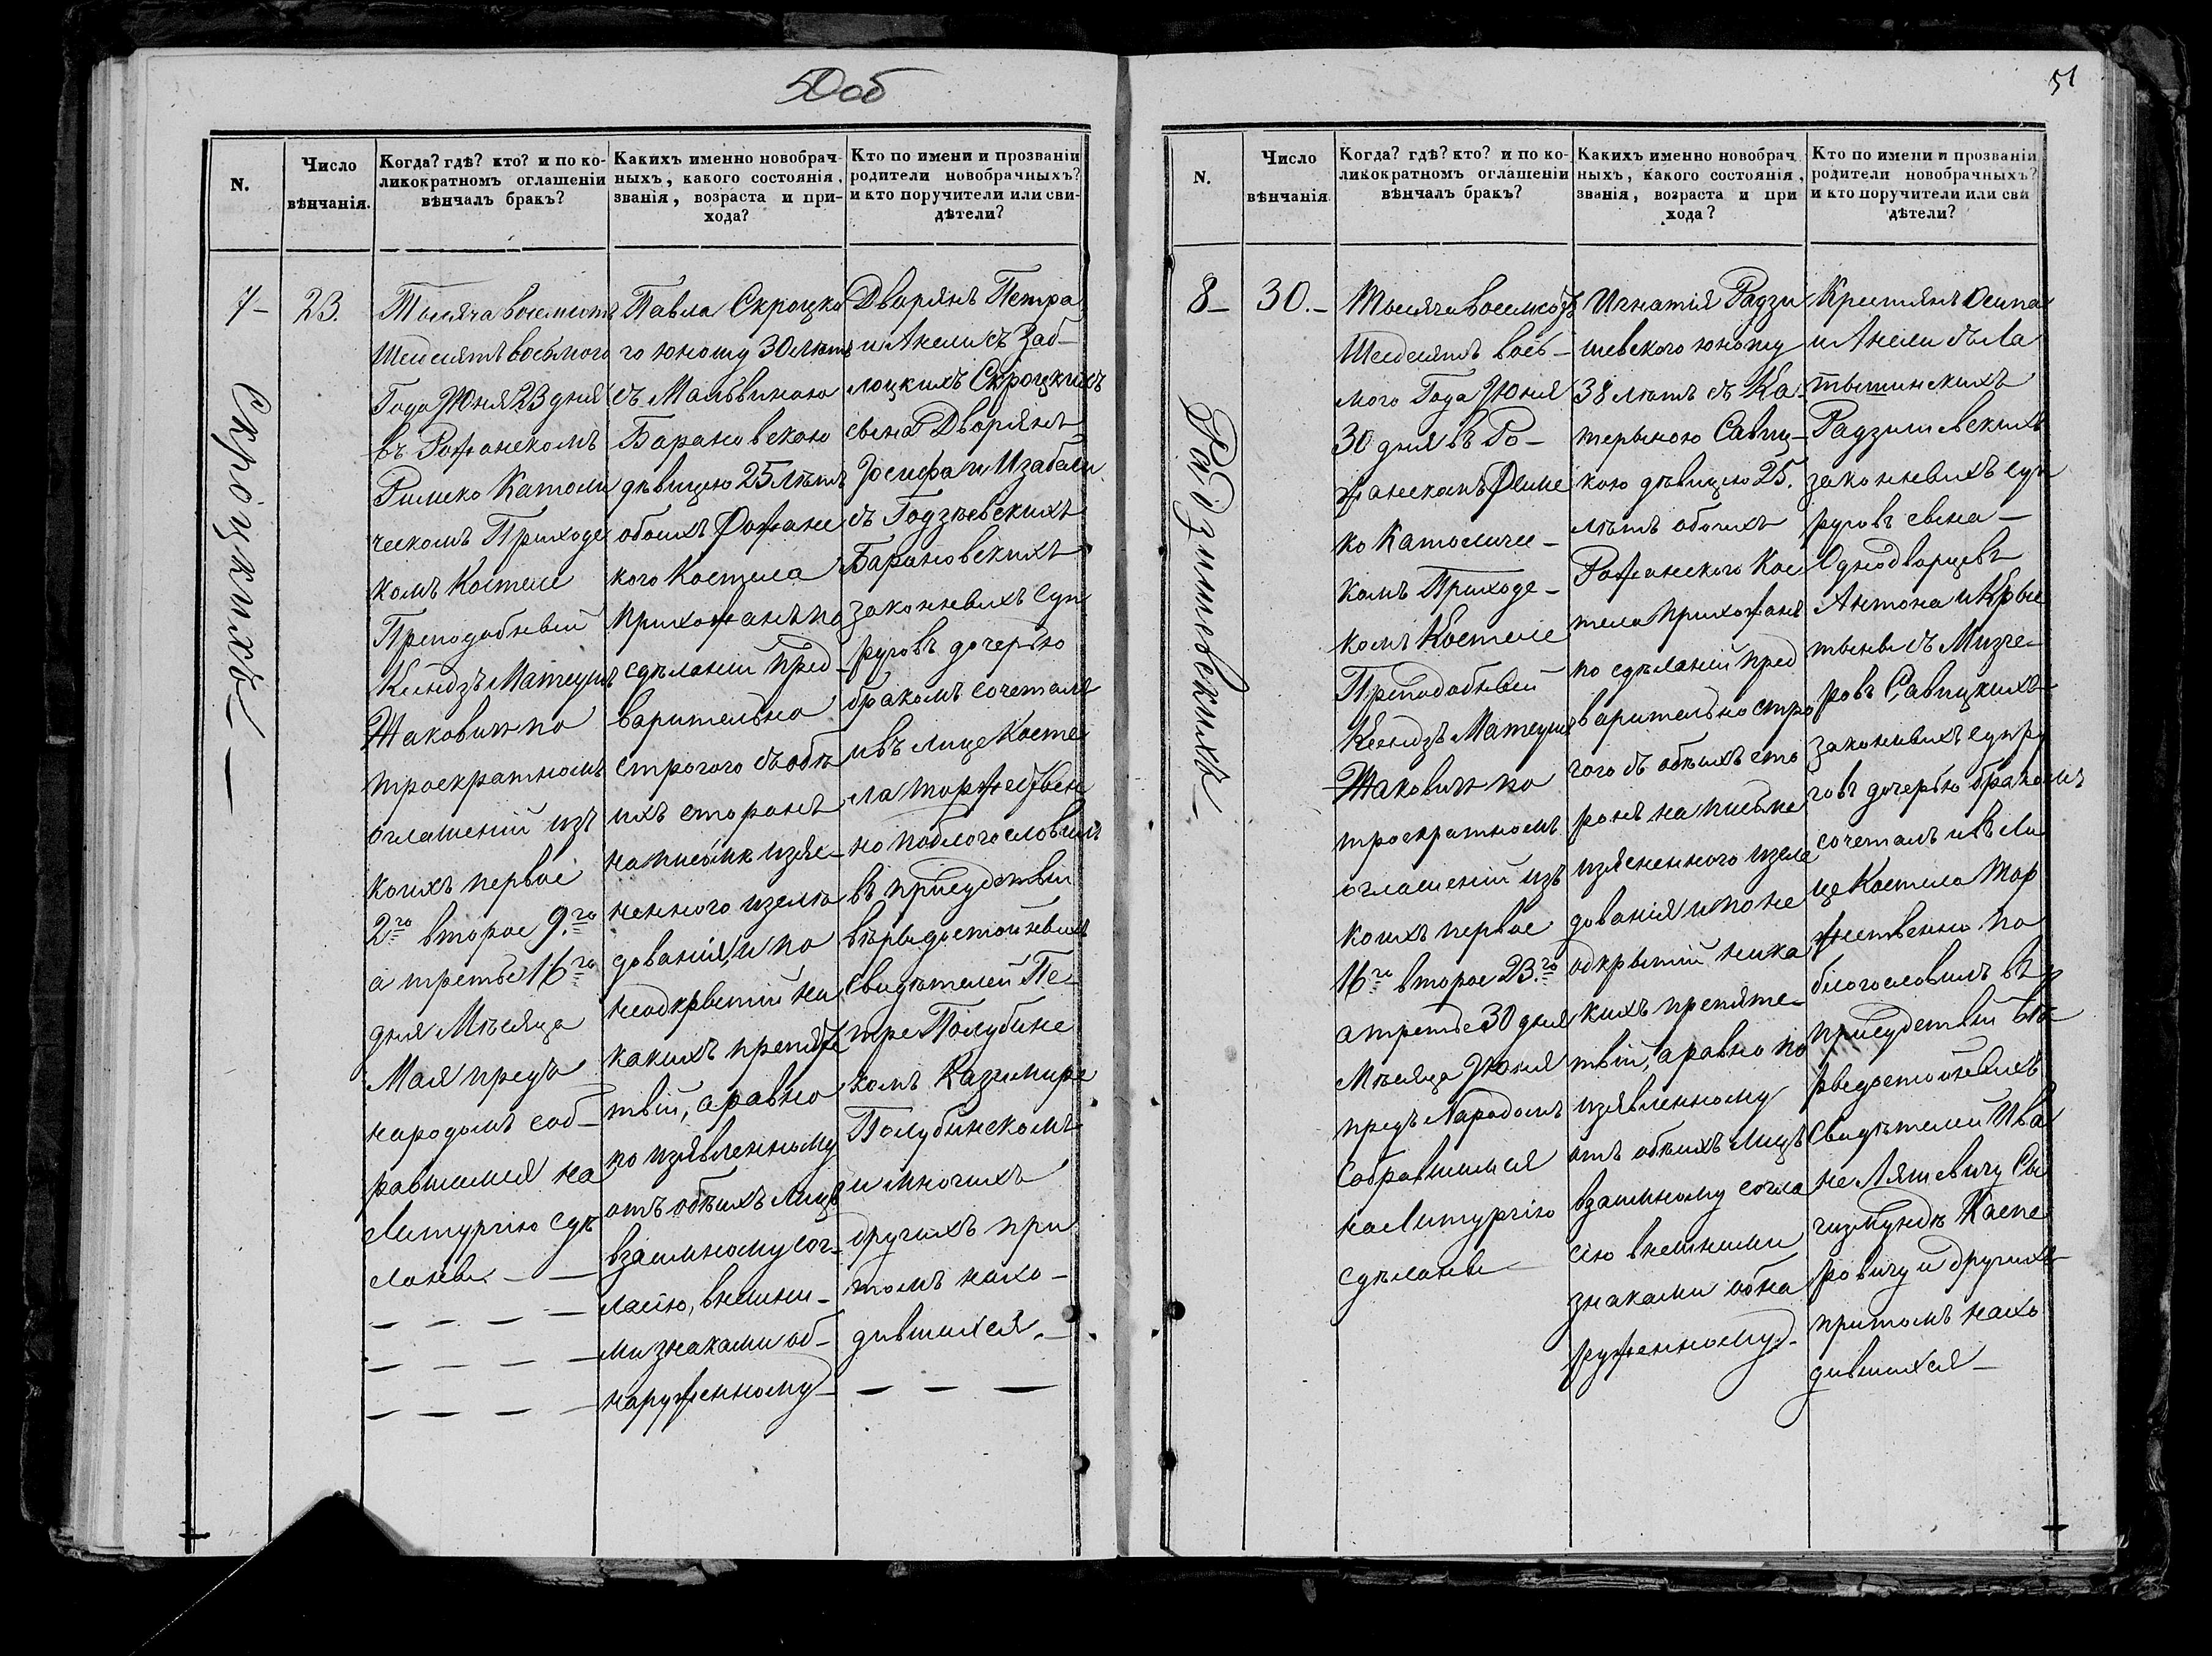 50об
N.
Число
вѣнчанія.
Когда? гдѣ? кто? и по ко-
ликократномъ оглашеніи
вѣнчалъ бракъ?
Какихъ именно новобрач-
ныхъ, какого состоянія,
званія, возраста и при-
хода?
Кто по имени и прозванію
родители новобрачныхъ?
и кто поручители или сви-
дѣтели?
7-
Скроцкихъ —
23.
Тысяча восемсотъ
Шесдеятъ восьмого
Года Юня 23 дня
въ Рожанскомъ
Римско Католи
ческомъ Приходс
комъ Костеле
Преподобный
Ксендзъ Матеушъ
Жаковичъ по
троекратномъ
оглашеніи изъ
коихъ первое
2го второе 9.го
а третье 16го
дня Мѣсяца
Мая предъ
народомъ соб-
равшимся на
Литургію сдѣ
ланы — —
Павла Скроцка
го юношу 30 лѣтъ
съ Мальвиною
Барановскою
дѣвицею 25 лѣтъ
обоихъ Рожанс
кого Костела
прихожанъ по
сдѣланіи пред-
варительно
строгого съ обѣ
ихъ сторонъ
на письмѣ изяс-
ненного изслѣ
дованія, и по
неодкрытіи ни
какихъ препятс
твій, а равно
по изявленному
отъ обѣихъ лицъ
взаимному сог-
ласію, внешни-
ми знаками об-
наруженному —
Дворянъ Петра
и Анели съ Заб-
лоцкихъ Скроцкихъ
сына Дворянъ
Іосифа и Изабели
съ Годзѣевскихъ
Барановскихъ
законныхъ суп
руговъ дочерью
бракомъ сочеталъ
и въ лице Косте
ла торжествен
но поблогословилъ
въ присудствіи
вѣрыдостойныхъ
Свидѣтелей Пе-
тре Полубинс
комъ Казимире
Полубинскомъ
и многихъ
другихъ при
томъ нахо-
дившихся. —
51
N.
Число
вѣнчанія
Когда? гдѣ? кто? и по ко-
ликократномъ оглашеніи
вѣнчалъ бракъ?
Какихъ именно новобрач
ныхъ, какого состоянія,
званія, возраста и при
хода?
Кто по имени и прозванію
родители новобрачныхъ?
и кто поручители или сви
дѣтели?
8-
Радзишевскихъ —
30.-
Тысяча восемсотъ
Шесдеятъ вось-
мого Года Юня
30 дня въ Ро-
жанскомъ Римс
ко Католичес-
комъ Приходс-
комъ Костеле
Преподобный
Ксендзъ Матеушъ
Жаковичъ по
троекратномъ
оглашеніи изъ
коихъ первое
16го второе 23.го
а третье 30 дня
Мѣсяца Юня
предъ Народомъ
собравшимся
на Литургію
сдѣланы
Игнатія Радзи
шевского юношу
38 лѣтъ съ Ка-
терыною Савиц-
кою дѣвицею 25.
лѣтъ обоихъ
Рожанского Кос
тела прихожанъ
по сдѣланіи пред
варительно стро
гого съ обѣихъ сто
ронъ на письме
изясненного изслѣ
дованія и по не
одкрытіи ника
кихъ препятс-
твій, а равно по
изявленному
отъ обѣихъ лицъ
взаимному согла
сію внешними
знаками обна
руженному. —
Крестянъ Осипа
и Анели съ Ла
тышинскихъ
Радзишевскихъ
законныхъ суп
руговъ сына —
Однодворцевъ
Антона и Крыс
тыны съ Мизге-
ровъ Савицкихъ
законныхъ супру
говъ дочерью бракомъ
сочеталъ и въ ли
це Костела тор
жественно по
блогословилъ въ
присудствіи вѣ-
рыдостойныхъ
Свидѣтелей Ива
не Ляшевичу Си
гизмундѣ Каспе
ровичу и другихъ
притомъ нахо
дившихся —